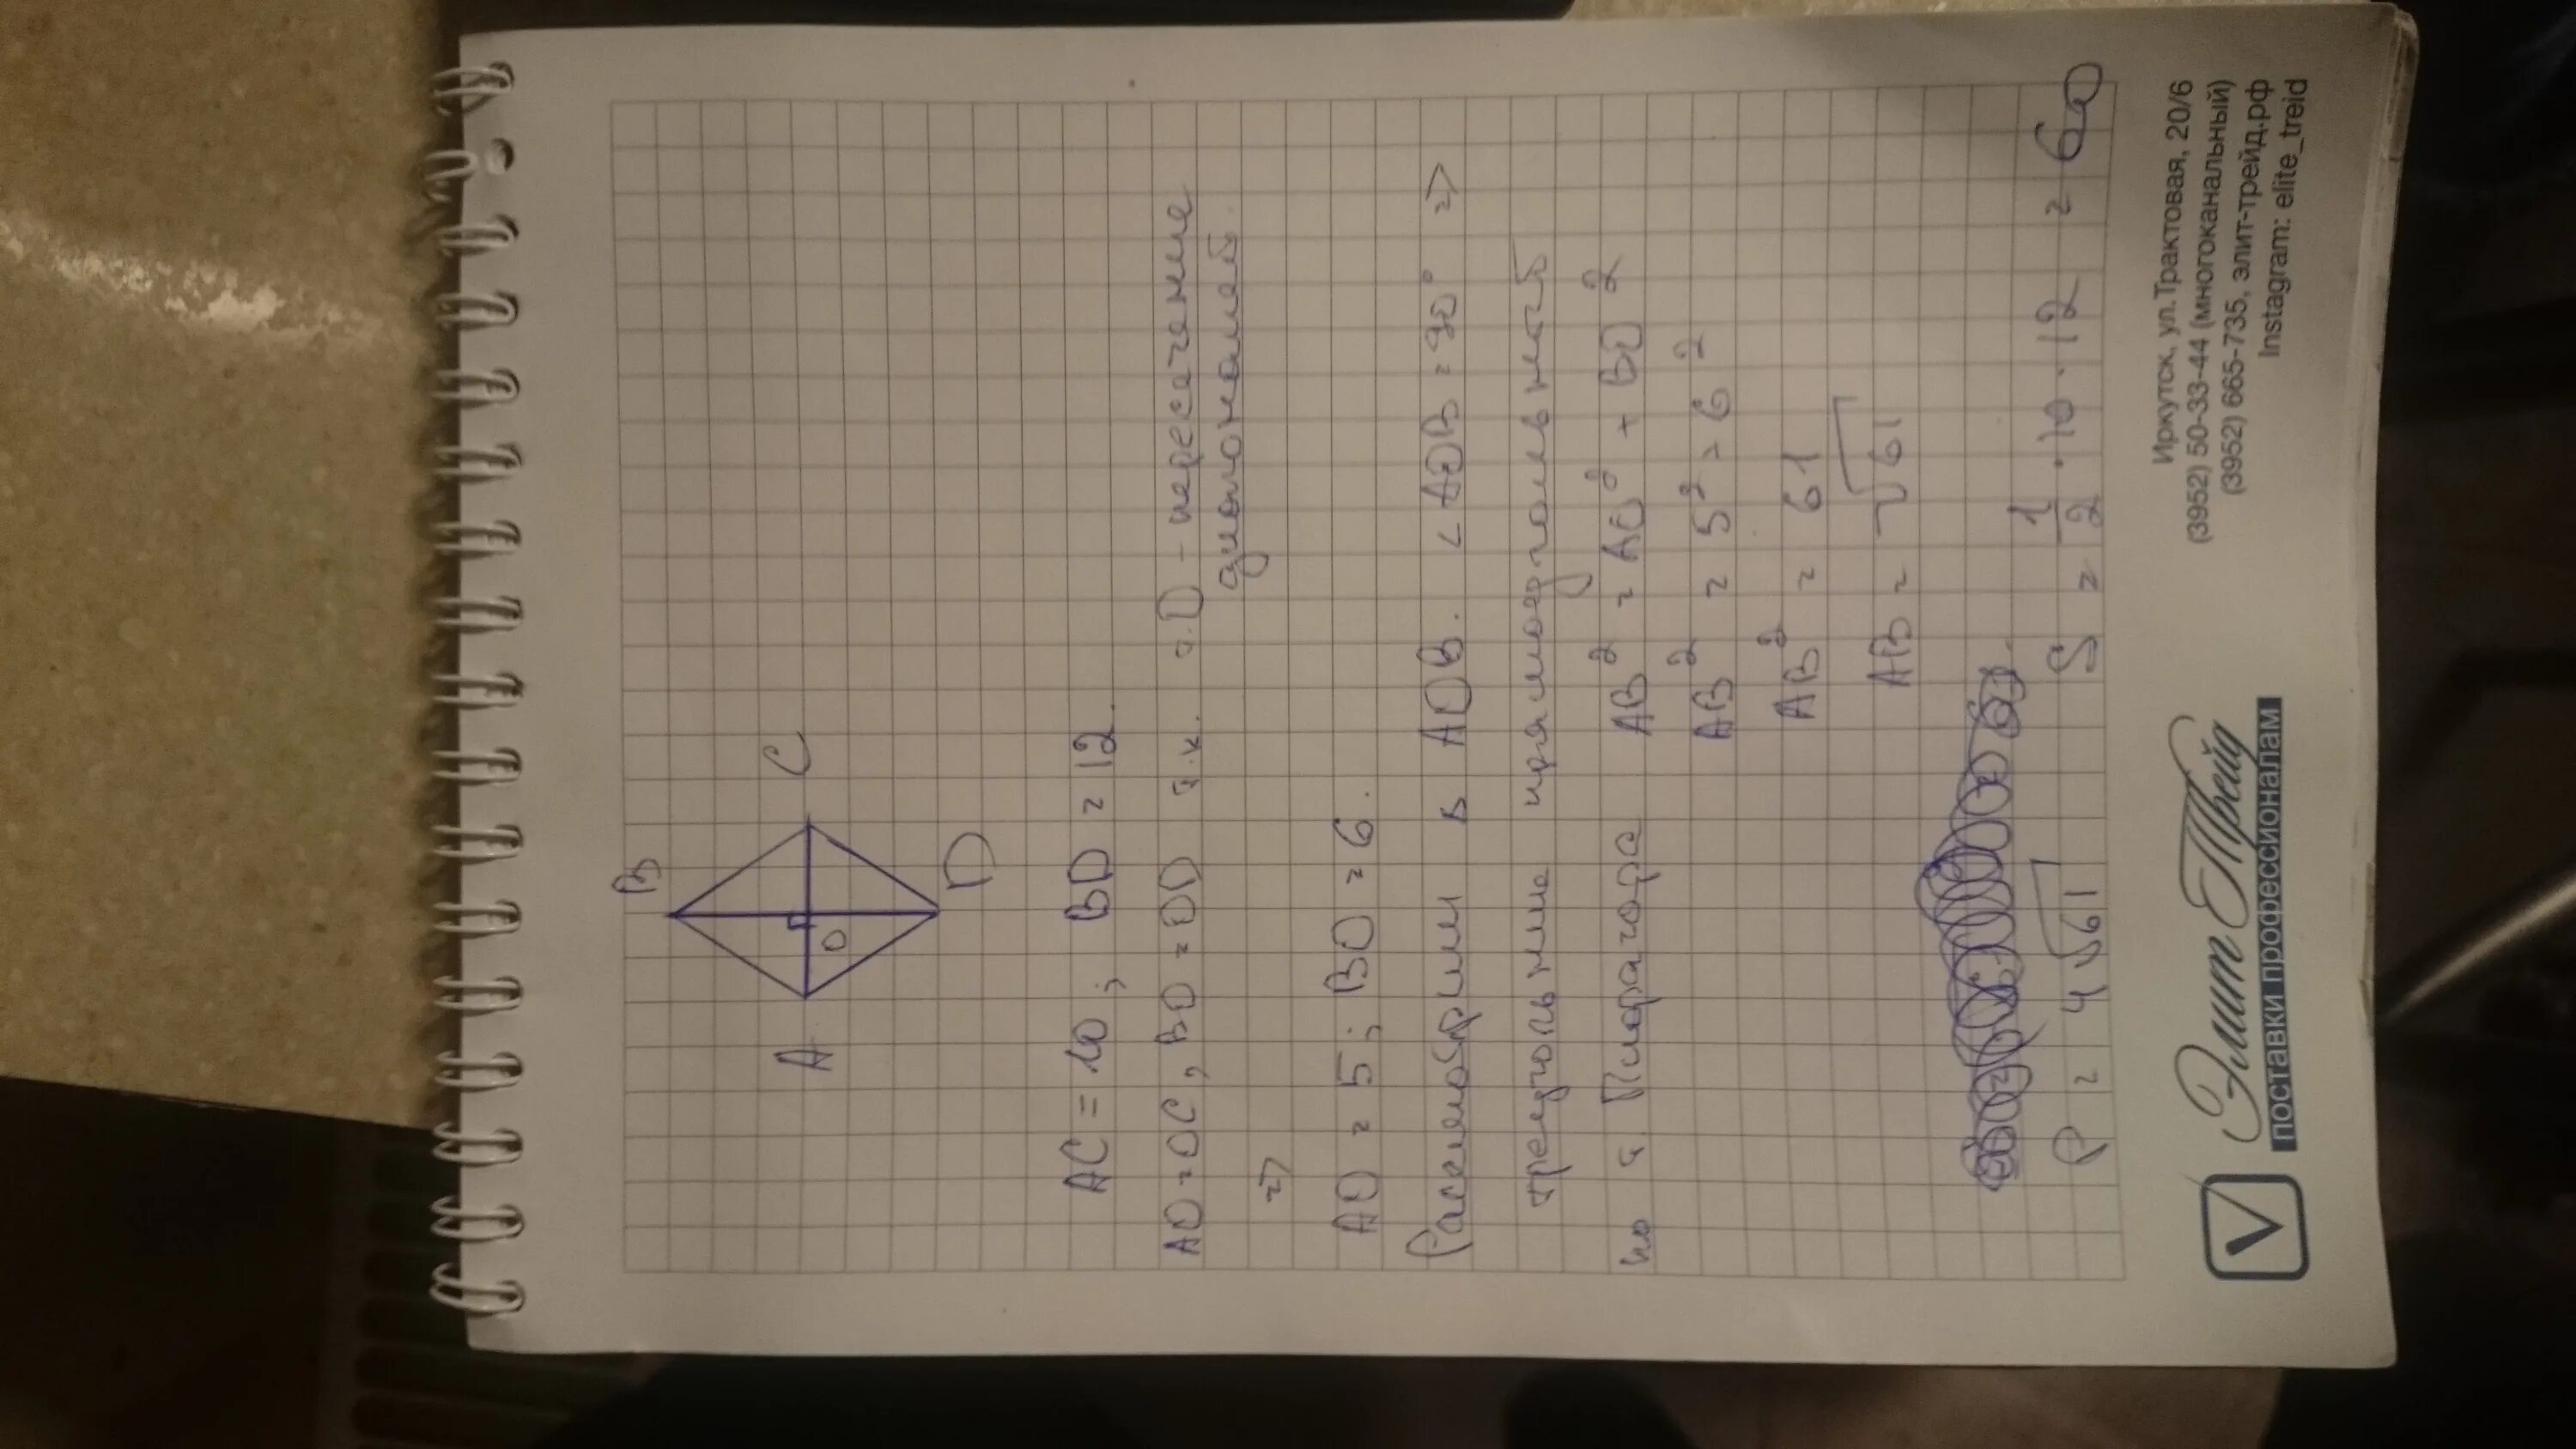 B
A
C
O
D
AC = 10; BD = 12.
AO = OC, BO = OD т.к. т.О - пересечение
диагоналей.
=>
AO = 5; BO = 6.
Рассмотрим в AOB. < AOB = 90° =>
треугольник прямоугольный
по т Пифагора AB² = AO² + BO²
AB² = 5² + 6²
AB² = 61
AB = √61
P = 4√61
S = 1/2 · 10 · 12 = 60
Элит Трейд
поставки профессионалам
Иркутск, ул.Трактовая, 20/6
(3952) 50-33-44 (многоканальный)
(3952) 665-735, элит-трейд.рф
Instagram: elite_treid